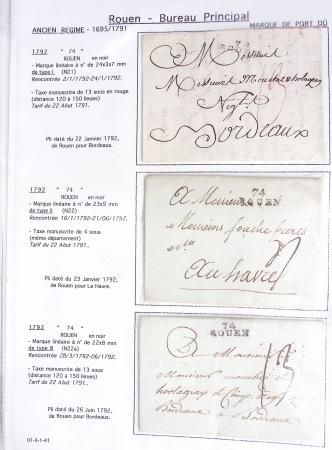 Rouen - Bureau Principal
ANCIEN REGIME - 1695/1791
MARQUE DE PORT DÛ
1792 " 74 "
ROUEN en noir
- Marque linéaire à n° de 24x3x7 mm
de type I (N21)
Rencontrée 2/1/1792-24/1/1792.
- Taxe manuscrite de 13 sous en rouge
(distance 120 à 150 lieues)
Tarif du 22 Aôut 1791.
Pli daté du 22 Janvier 1792,
de Rouen pour Bordeaux.
Messieurs
Negts
Bordeaux
1792 " 74 "
ROUEN en noir
- Marque linéaire à n° de 23x9 mm
de type II (N22)
Rencontrée 16/1/1792-21/06/1792.
- Taxe manuscrite de 4 sous
(même département)
Tarif du 22 Aôut 1791..
Pli daté du 23 Janvier 1792,
de Rouen pour Le Havre.
74
ROUEN
A Messieurs
Messieurs
au havre
1792 " 74 "
ROUEN en noir
- Marque linéaire à n° de 22x8 mm
de type III (N22a)
Rencontrée 28/3/1792-06/1792.
- Taxe manuscrite de 13 sous
(distance 120 à 150 lieues)
Tarif du 22 Aôut 1791..
Pli daté du 26 Juin 1792,
de Rouen pour Bordeaux.
74
ROUEN
A Monsieur
Monsieur
Bordeaux a Bordeaux
01-3-1-41